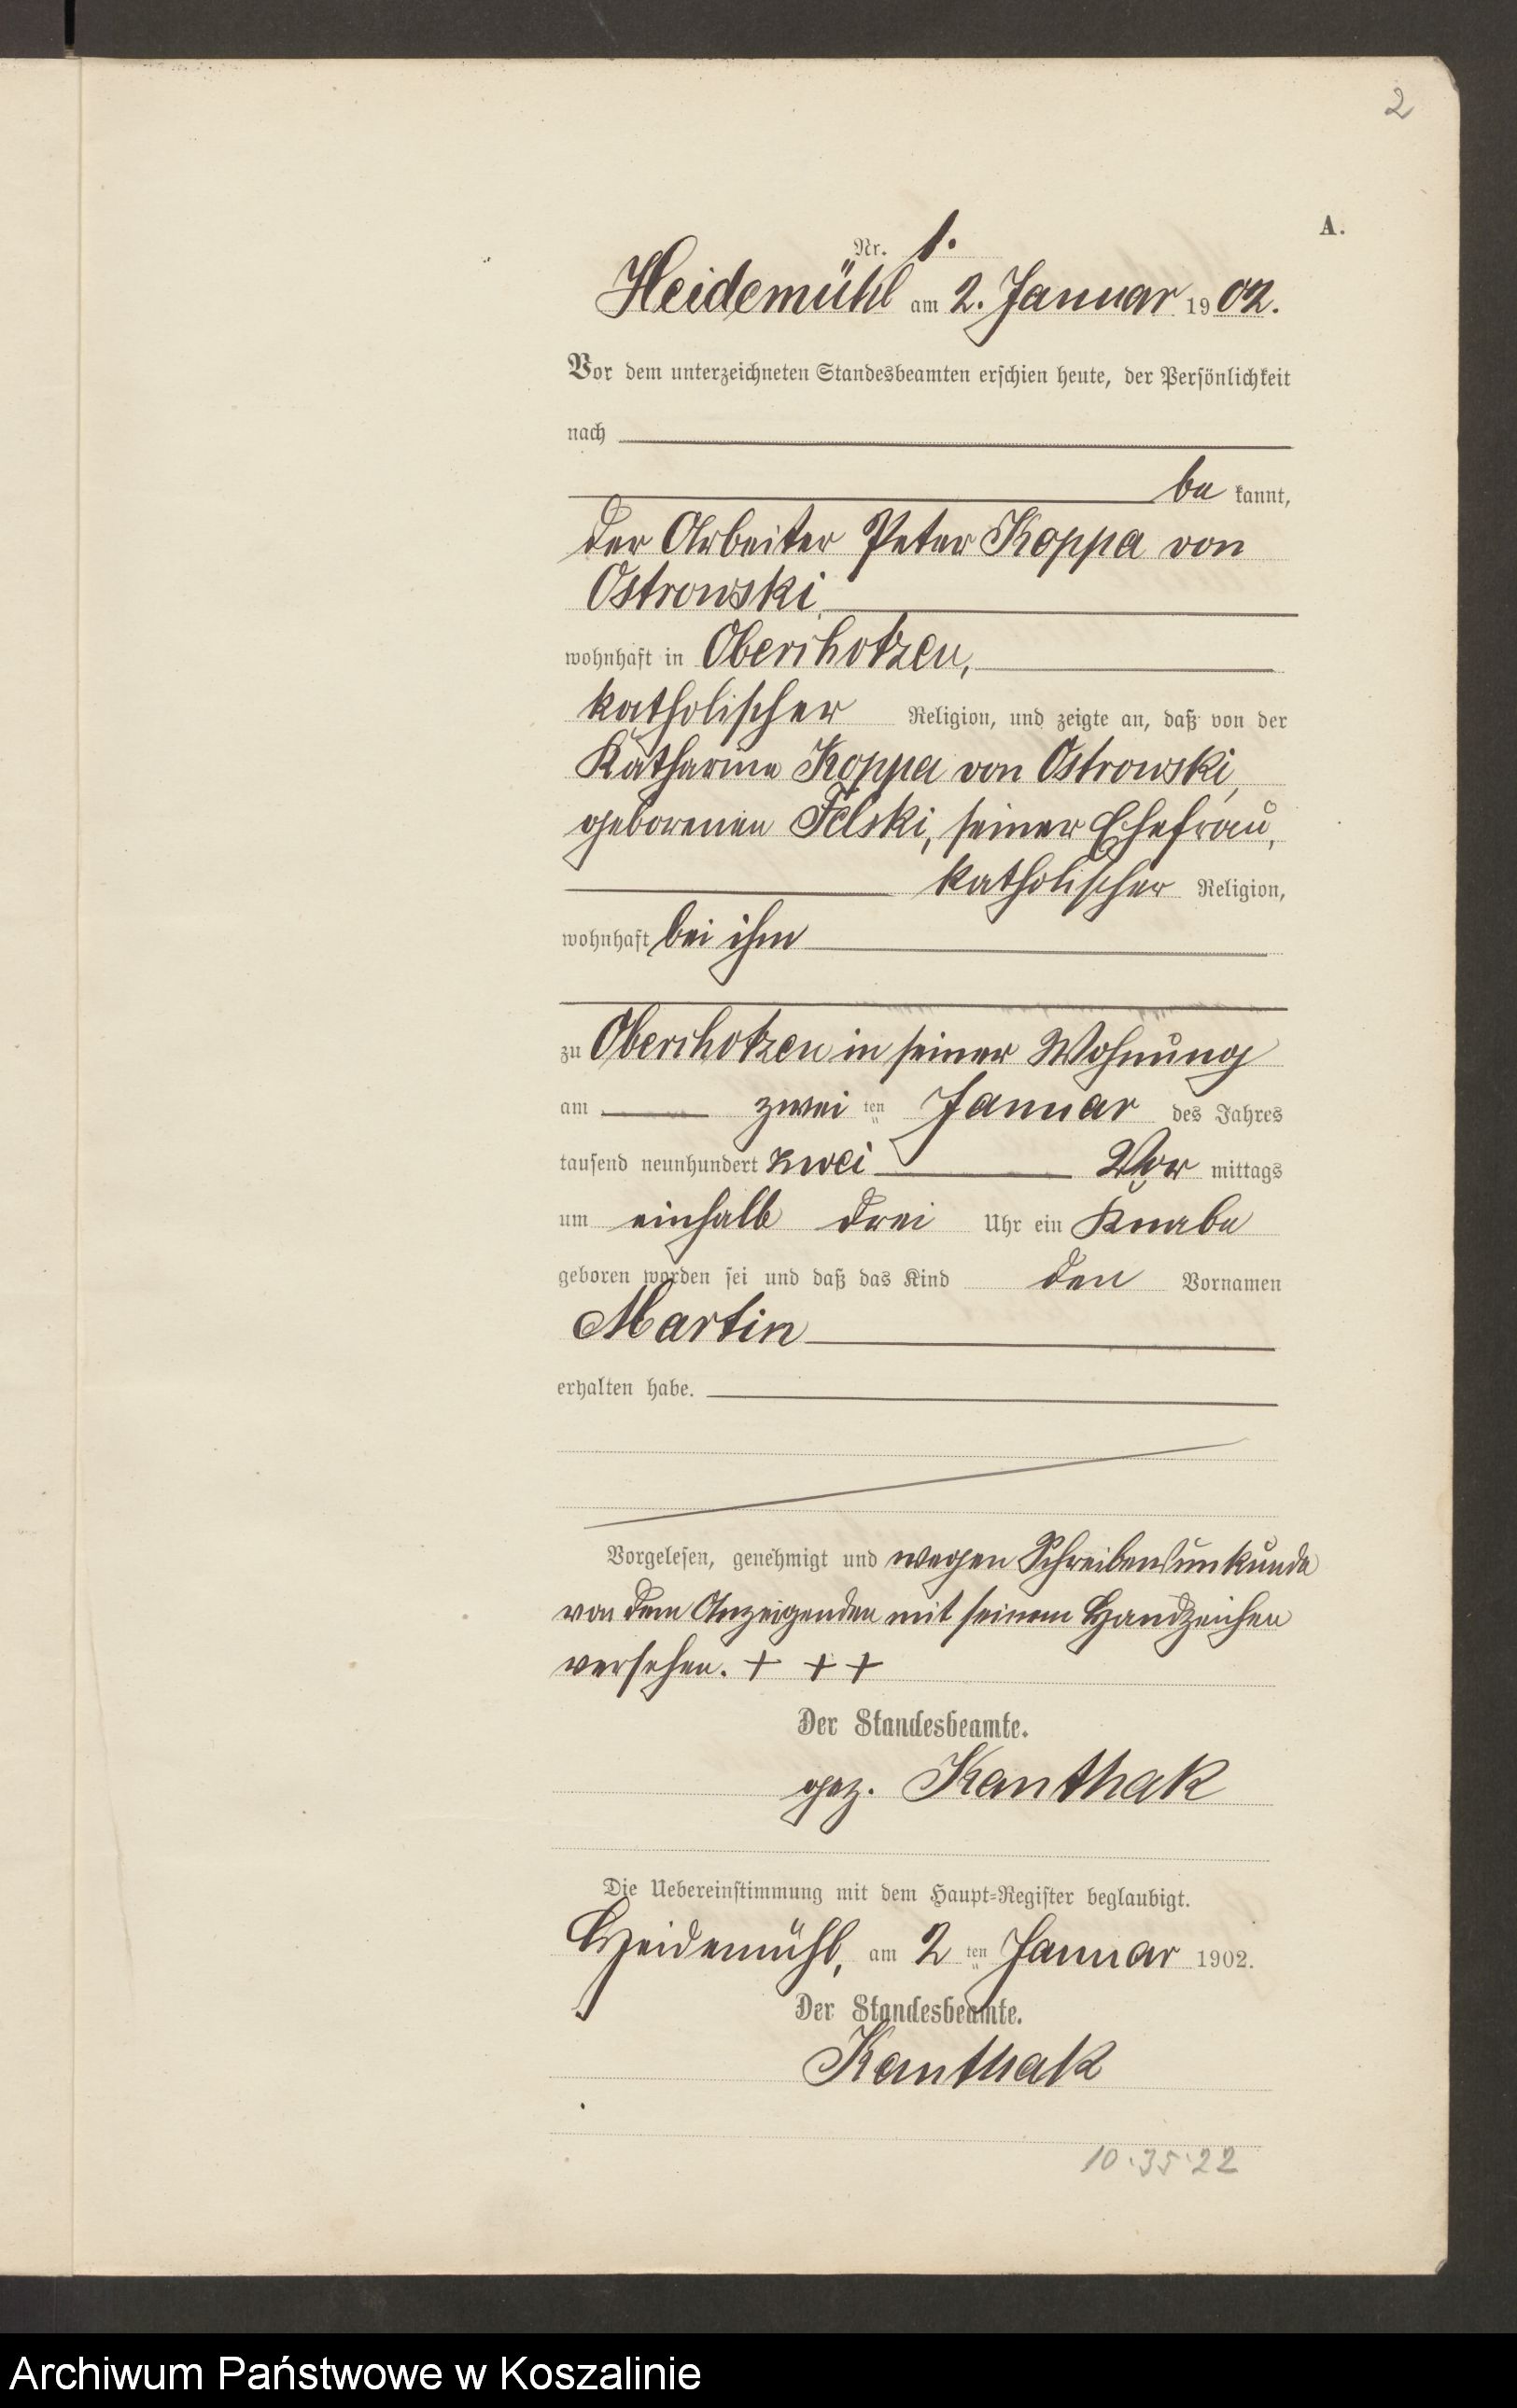 2
A.
Nr. 1.
Heidemühl am 2. Januar 1902.
Vor dem unterzeichneten Standesbeamten erschien heute, der Persönlichkeit
nach
be kannt,
der Arbeiter Peter Koppa von
Ostrowski,
wohnhaft in Oberchotzen,
katholischer Religion, und zeigte an, daß von der
Katharina Koppa von Ostrowski,
geborenen Felski, seiner Ehefrau,
katholischer Religion,
wohnhaft bei ihm
zu Oberchotzen in seiner Wohnung
am zwei ten Januar des Jahres
tausend neunhundert zwei Vor mittags
um einhalb drei Uhr ein Knabe
geboren worden sei und daß das Kind den Vornamen
Martin
erhalten habe.
Vorgelesen, genehmigt und wegen Schreibensunkunde
von dem Anzeigenden mit seinem Handzeichen
versehen. + + +
Der Standesbeamte.
gez. Kanthak
Die Uebereinstimmung mit dem Haupt-Register beglaubigt.
Heidemühl, am 2 ten Januar 1902.
Der Standesbeamte.
Kanthak
10.35.22
Archiwum Państwowe w Koszalinie